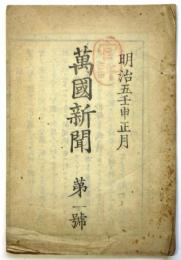 明治五壬申正月
萬國新聞 第一號